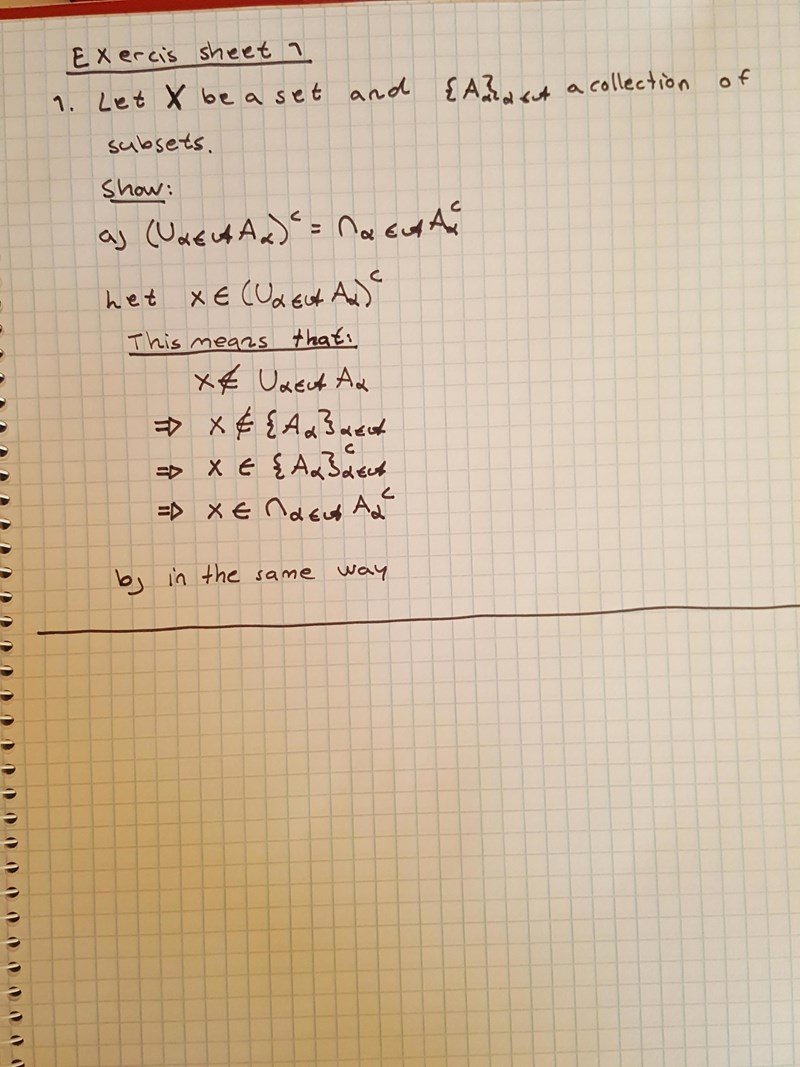 Exercis sheet 1
1. Let X be a set and {A_α}_{α∈𝒜} a collection of
subsets.
Show:
a) (∪_{α∈𝒜} A_α)^c = ∩_{α∈𝒜} A_α^c
Let x ∈ (∪_{α∈𝒜} A_α)^c
This means that:
x ∉ ∪_{α∈𝒜} A_α
⇒ x ∉ {A_α}_{α∈𝒜}
⇒ x ∈ {A_α}^c_{α∈𝒜}
⇒ x ∈ ∩_{α∈𝒜} A_α^c
b) in the same way